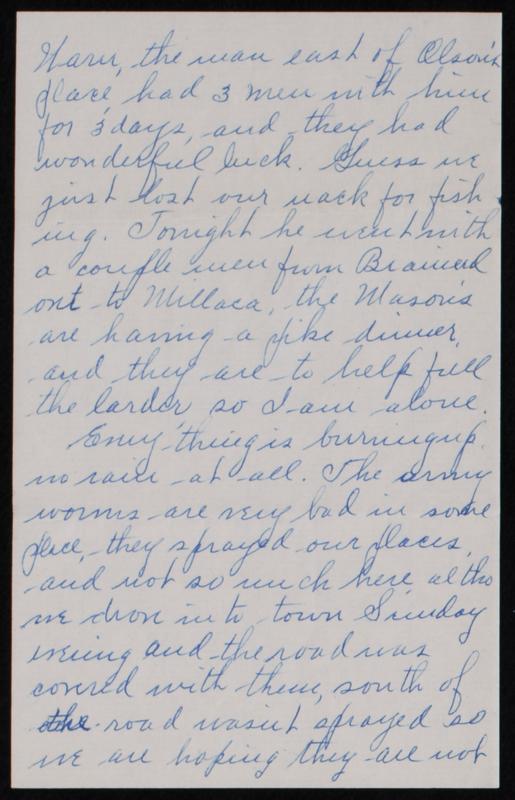 Harv, the man east of Olson's
place, had 3 men with him
for 3 days, and they had
wonderful luck. Guess we
just lost our nack for fish
ing. Tonight he went with
a couple men from Brainerd
out to Millaca, the Mason's
are having a pike dinner,
and they are to help fill
the larder so I am alone.
Every thing is burning up.
no rain at all. The army
worms are very bad in some
place, they sprayed our places,
and not so much here altho
we drove in to town Sunday
evening and the road was
covered with them, south of
the road wasn't sprayed so
we are hoping they are not